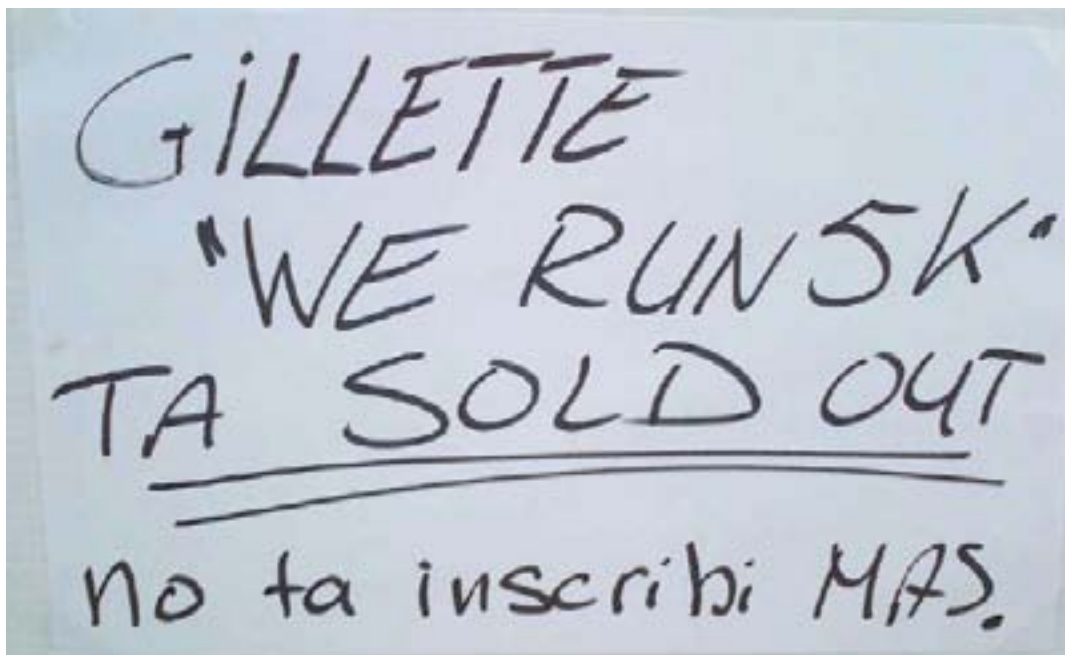 GiLLETTE
"WE RUN 5K"
TA SOLD OUT
no ta inscribi MAS.